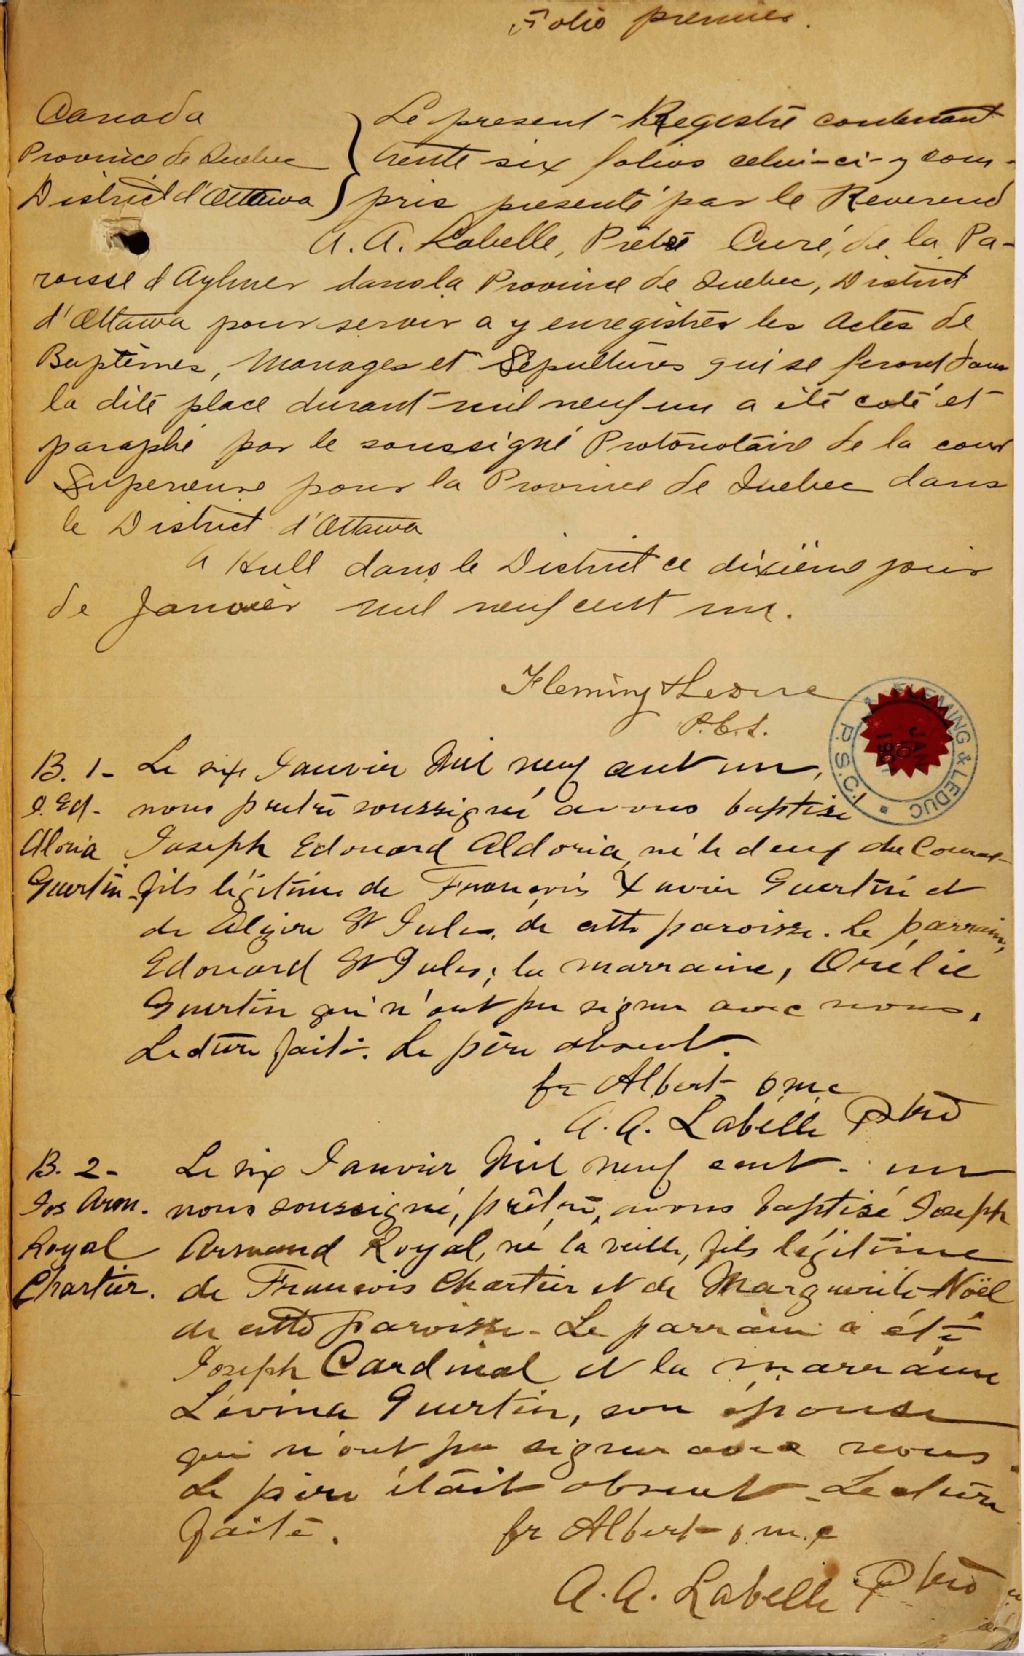 Folio premier.
Canada
Province de Quebec
District d'Ottawa
Le present Registre contenant
trente six folios celui-ci y com-
pris presenté par le Reverend
A. A. Labelle, Prêtre Curé, de la Pa-
roisse d'Aylmer dans la Province de Quebec, District
d'Ottawa pour servir a y enregistrer les Actes de
Baptêmes, Mariages et Sépultures qui se feront dans
la dite place durant mil neuf un a été coté et
paraphé par le soussigné Protonotaire de la cour
Superieure pour la Province de Quebec dans
le District d'Ottawa
A Hull dans le District ce dixième jour
de Janvier mil neuf cent un.
Fleming & Leduc
P.C.S.
FLEMING & LEDUC P.S.C.
JAN
B. 1- Le six Janvier Mil neuf cent un,
J. Ed. nous prêtre soussigné avons baptisé
Aloria Joseph Edouard Aldoria, né le deux du Courant
Guertin. fils légitime de François Xavier Guertin et
de Alzire St Jules, de cette paroisse. Le parrain,
Edouard St Jules; la marraine, Orélie
Guertin qui n'ont pu signer avec nous.
Lecture faite. Le père absent.
fr Albert o m c
A. A. Labelle Ptre
B. 2- Le six Janvier Mil neuf cent un
Jos Arm. nous soussigné, prêtre, avons baptisé Joseph
Royal Armand Royal, né la veille, fils légitime
Chartier. de François Chartier et de Marguerite Noël
de cette paroisse. Le parrain a été
Joseph Cardinal et la marraine
Lévina Guertin, son épouse
qui n'ont pu signer avec nous.
Le père était absent. Lecture
faite. fr Albert o m c
A. A. Labelle Ptre